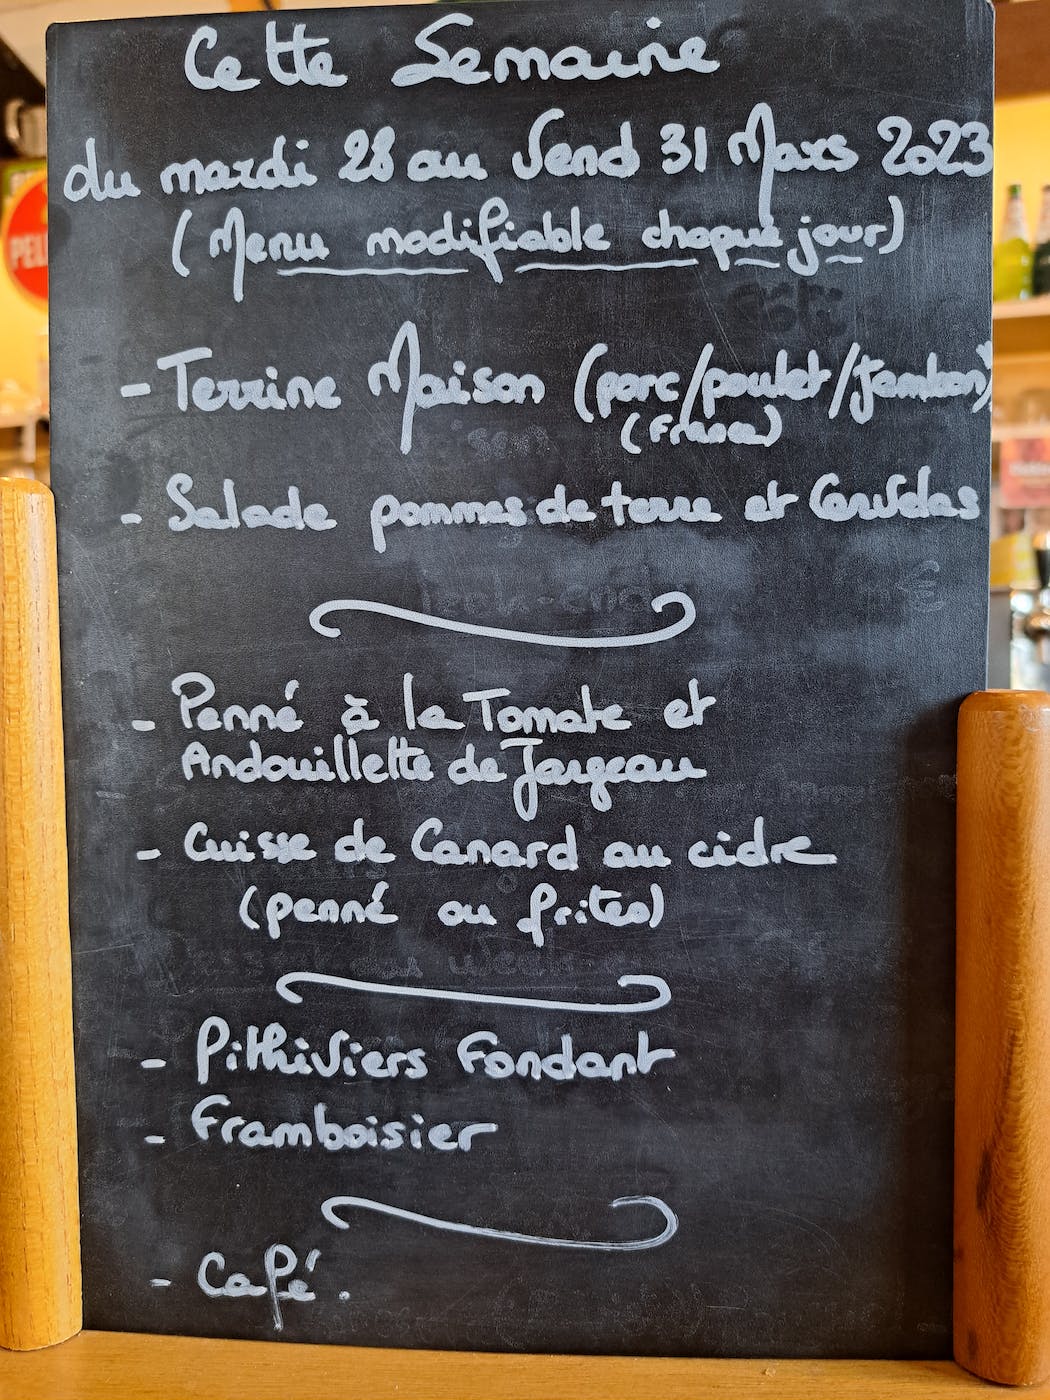 Cette Semaine
du mardi 28 au Vend 31 Mars 2023
(Menu modifiable chaque jour)
- Terrine Maison (porc/poulet/jambon)
(France)
- Salade pommes de terre et Cervelas
- Penné à la Tomate et
Andouillette de Jargeau
- Cuisse de Canard au cidre
(penné ou frites)
- Pithiviers Fondant
- Framboisier
- Café.
PEL